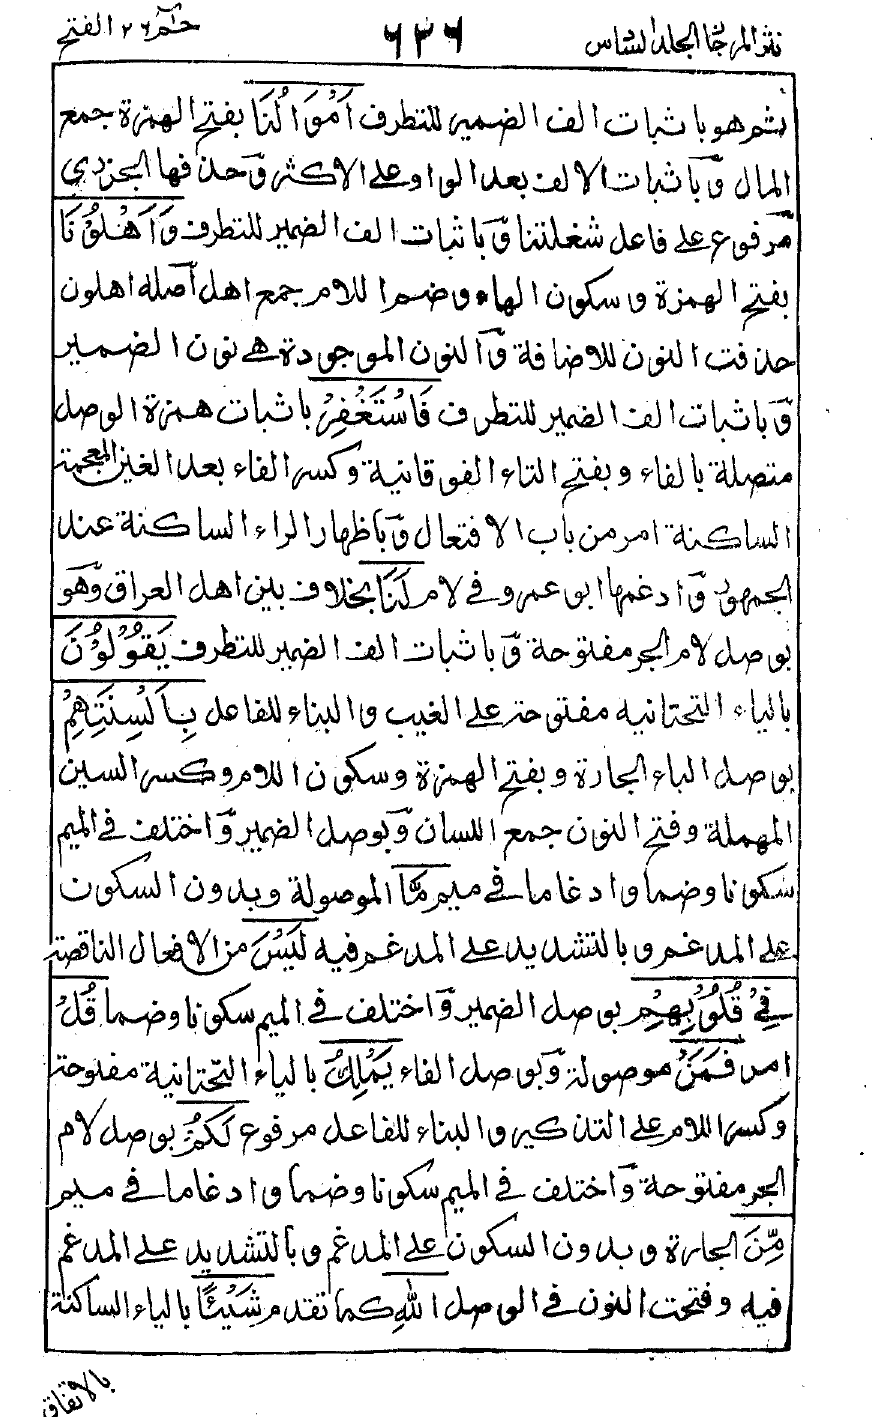 نثر المرجان الجلد السادس ٦٣٦ حٰمٓ ٢٦ الفتح
ثم هو باثبات الف الضمير للتطرف اَمْوَالُنَا بفتح الهمزة جمع
المال وَباثبات الالف بعد الواو على الاكثر وَحذفها الجزري
مَرفوع على فاعل شغلتنا وَباثبات الف الضمير للتطرف وَاَهْلُوْنَا
بفتح الهمزة وسكون الهاء وضم اللام جمع اهل اَصله اهلون
حذفت النون للاضافة وَالنون الموجودة هے نون الضمير
وَباثبات الف الضمير للتطرف فَاسْتَغْفِرْ باثبات همزة الوصل
متصلة بالفاء وبفتح التاء الفوقانية وكسر الفاء بعد الغين المعجمة
الساكنة امر من باب الافتعال وَباظهار الراء الساكنة عند
الجمهور وَادغمها ابو عمرو فے لام لَنَا بخلاف بين اهل العراق وَهو
بوصل لام الجر مفتوحة وَباثبات الف الضمير للتطرف يَقُوْلُوْنَ
بالياء التحتانية مفتوحة على الغيب والبناء للفاعل بِاَلْسِنَتِهِمْ
بوصل الباء الجارة وبفتح الهمزة وسكون اللام وكسر السين
المهملة وفتح النون جمع اللسان وَبوصل الضمير وَاختلف فے الميم
سكونا وضما وادغاما فے ميم مَّا الموصولة وبدون السكون
على المدغم وبالتشديد على المدغم فيه لَيْسَ من الافعال الناقصة
فِيْ قُلُوْبِهِمْ بوصل الضمير وَاختلف فے الميم سكونا وضما قُلْ
امر فَمَنْ موصولة وَبوصل الفاء يَمْلِكُ بالياء التحتانية مفتوحة
وكسر اللام على التذكير والبناء للفاعل مرفوع لَكُمْ بوصل لام
الجر مفتوحة وَاختلف فے الميم سكونا وضما وادغاما فے ميم
مِّنَ الجارة وبدون السكون على المدغم وبالتشديد على المدغم
فيه وفتحت النون فے الوصل اللّٰهِ كما تقدم شَيْئًا بالياء الساكنة
بالاتفاق